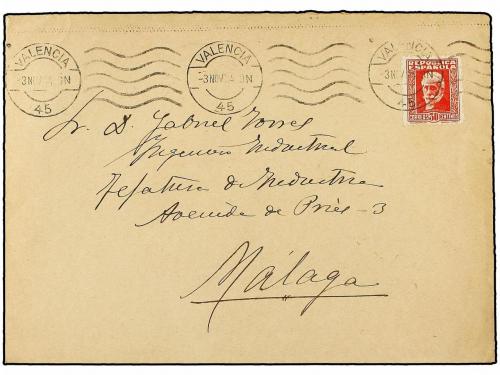 VALENCIA
-3NOV 4 9N
45
VALENCIA
-3NOV 4 9N
45
VALENCIA
-3NOV
45
REPUBLICA
ESPAÑOLA
CORREOS 30 CENTIMOS
Sr. D. Gabriel Torres
Ingeniero Industrial
Jefatura de Industria
Avenida de Pries-3
Málaga